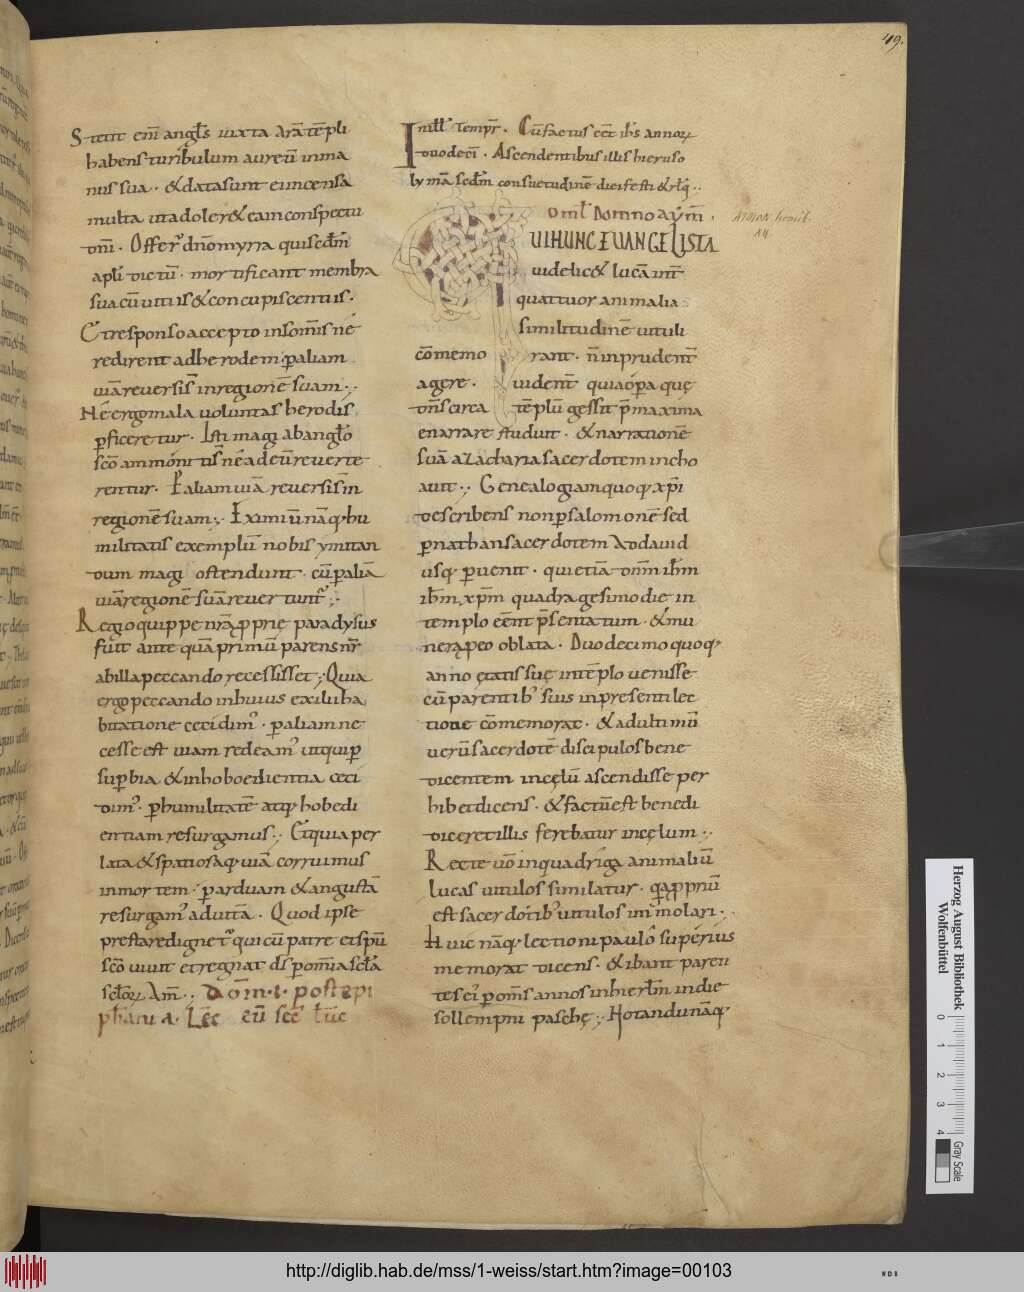 49.
Stetit em̅ angl̅s iuxta arā te̅pli
habens turibulum aureū in ma
nu sua. & data sunt ei incensa
multa ut adoler& ea in conspectu
dn̅i. Offert dn̅o myrra qui sedm̅
apl̅i dictū. mortificant membra
sua cū uitiis & concupiscentiis.
Et responso accepto in somn̅is ne
redirent ad herodem. p aliam
uiā reuersi s̅ in regione̅ suam.
Ne ergo mala uoluntas herodis
pficeretur. Isti magi ab angl̅o
sc̅o ammoniti s̅ ne ad eū reuerte
rentur. P aliam uiā reuersi s̅ in
regione̅ suam. Eximiū naq; hu
militatis exemplū nobis ymitan
dum magi ostendunt. cū p aliā
uiā regione̅ suā reuertunt̅.
Regio quippe nr̅a pprie paradysus
fuit ante quā primū parens nr̅
ab illa peccando recessisset. Quia
ergo peccando in huius exilii ha
bitatione cecidim̅. p aliam ne
cesse est uiam redeam̅ ut qui p
supbia & inhoboedientia ceci
dim̅. p humilitate̅ atq; hobedi
entiam resurgamus. Et quia per
lata & spatiosaq; uiā corruimus
in mortem. p arduam & angustā
resurgam̅ ad uitā. Quod ipse
prestare dignet̅ qui cū patre et sp̅u
sc̅o uiuit et regnat ds̅ p om̅ia sc̅la
sc̅loꝝ Am̅. Dom̅. I. post epi
phania. Lec eū sec̅ luc
In ill̅ tempr̅. Cū factus ec̅t ihs̅ annoꝝ
duodeci̅. Ascendentibus illis hieruso
lymā sedm̅ consuetudine̅ diei festi & rlq̅.
Omel̅ Domno aym̅.
AIMON. homil.
QUI HUNC EUANGELISTA
uidelic& lucā int̅
quattuor animalia
similitudine̅ uituli
com̅emo rant. n̅ inprudent̅
agere. uident̅ quia opa quę
dn̅s circa te̅plū gessit p̅ maxima
enarrare studuit. & narratione̅
suā a zacharia sacerdotem incho
auit. Genealogiam quoq; xp̅i
describens non p salomone̅ sed
p nathan sacerdotem ad dauid
usq; puenit. qui etiā dn̅m ih̅m
ih̅m xp̅m quadragesimo die in
templo ee̅nt p̅sentatum. & mu
nera p eo oblata. Duodecimo quoq;
anno ętatis suę in te̅plo uenisse
cū parentib; suis in presenti lec
tione com̅emorat. & ad ultimū
uerū sacerdote̅ discipulos bene
dicentem in cęlū ascendisse per
hibet dicens. & factū est benedi
diceret illis ferebatur in cęlum.
Recte uo̅ in quadriga animaliū
lucas uitulos similatur. q̅a ppriū
est sacerdotib; uitulos immolari.
Huic naq; lectioni paulo superius
memorat dicens. & ibant paren
tes ei; p om̅s annos in hierl̅m in die
sollempni paschę. Notandū naq;
Herzog August Bibliothek
Wolfenbüttel
0 1 2 3 4
Gray Scale
http://diglib.hab.de/mss/1-weiss/start.htm?image=00103